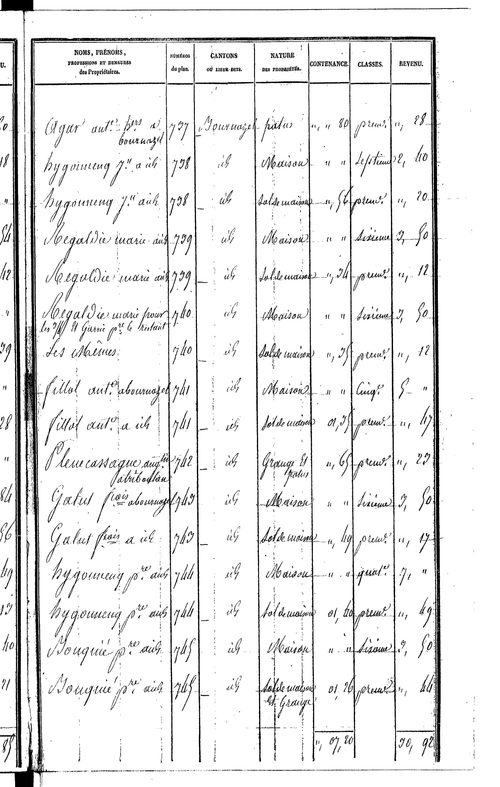 U.
NOMS, PRÉNOMS,
PROFESSIONS ET DEMEURES
des Propriétaires.
NUMÉROS
du plan.
CANTONS
OU LIEUX-DITS.
NATURE
DES PROPRIÉTÉS.
CONTENANCE.
CLASSES.
REVENU.
Agar ant.ne p.re a bournazel 737 Bournazel patus " " 80 prem.e ", 28
hygonneng j.n a id 738 id Maison " " septieme 2, 40
hygonneng j.n a id 738 id Sol de maison ", 56 prem.e ", 20
Regaldie marie a id 739 id Maison " " Sixieme 3, 50
Regaldie marie a id 739 id Sol de maison ", 34 prem.e ", 12
Regaldie marie pour 740 id Maison " " Sixieme 3, 50
les Mêmes 740 id Sol de maison ", 35 prem.e ", 12
fillol ant.ne a bournazel 741 id Maison " " Cinq.e 5 "
fillol ant.ne a id 741 id Sol de maison 01, 35 prem.e ", 47
Plenecassagne aug.tin 742 id Grange Et patus ", 65 prem.e ", 23
Galut frais a bournazel 743 id Maison " " Sixieme 3, 50
Galut frais a id 743 id Sol de maison ", 49 prem.e ", 17
hygonneng p.re a id 744 id Maison " " quat.e 7, "
hygonneng p.re a id 744 id Sol de maison 01, 40 prem.e ", 49
Bouquié p.re a id 745 id Maison " " Sixieme 3, 50
Bouquié p.re a id 745 id Sol de maison Et Grange 01, 26 prem.e ", 44
", 07, 20 30, 92